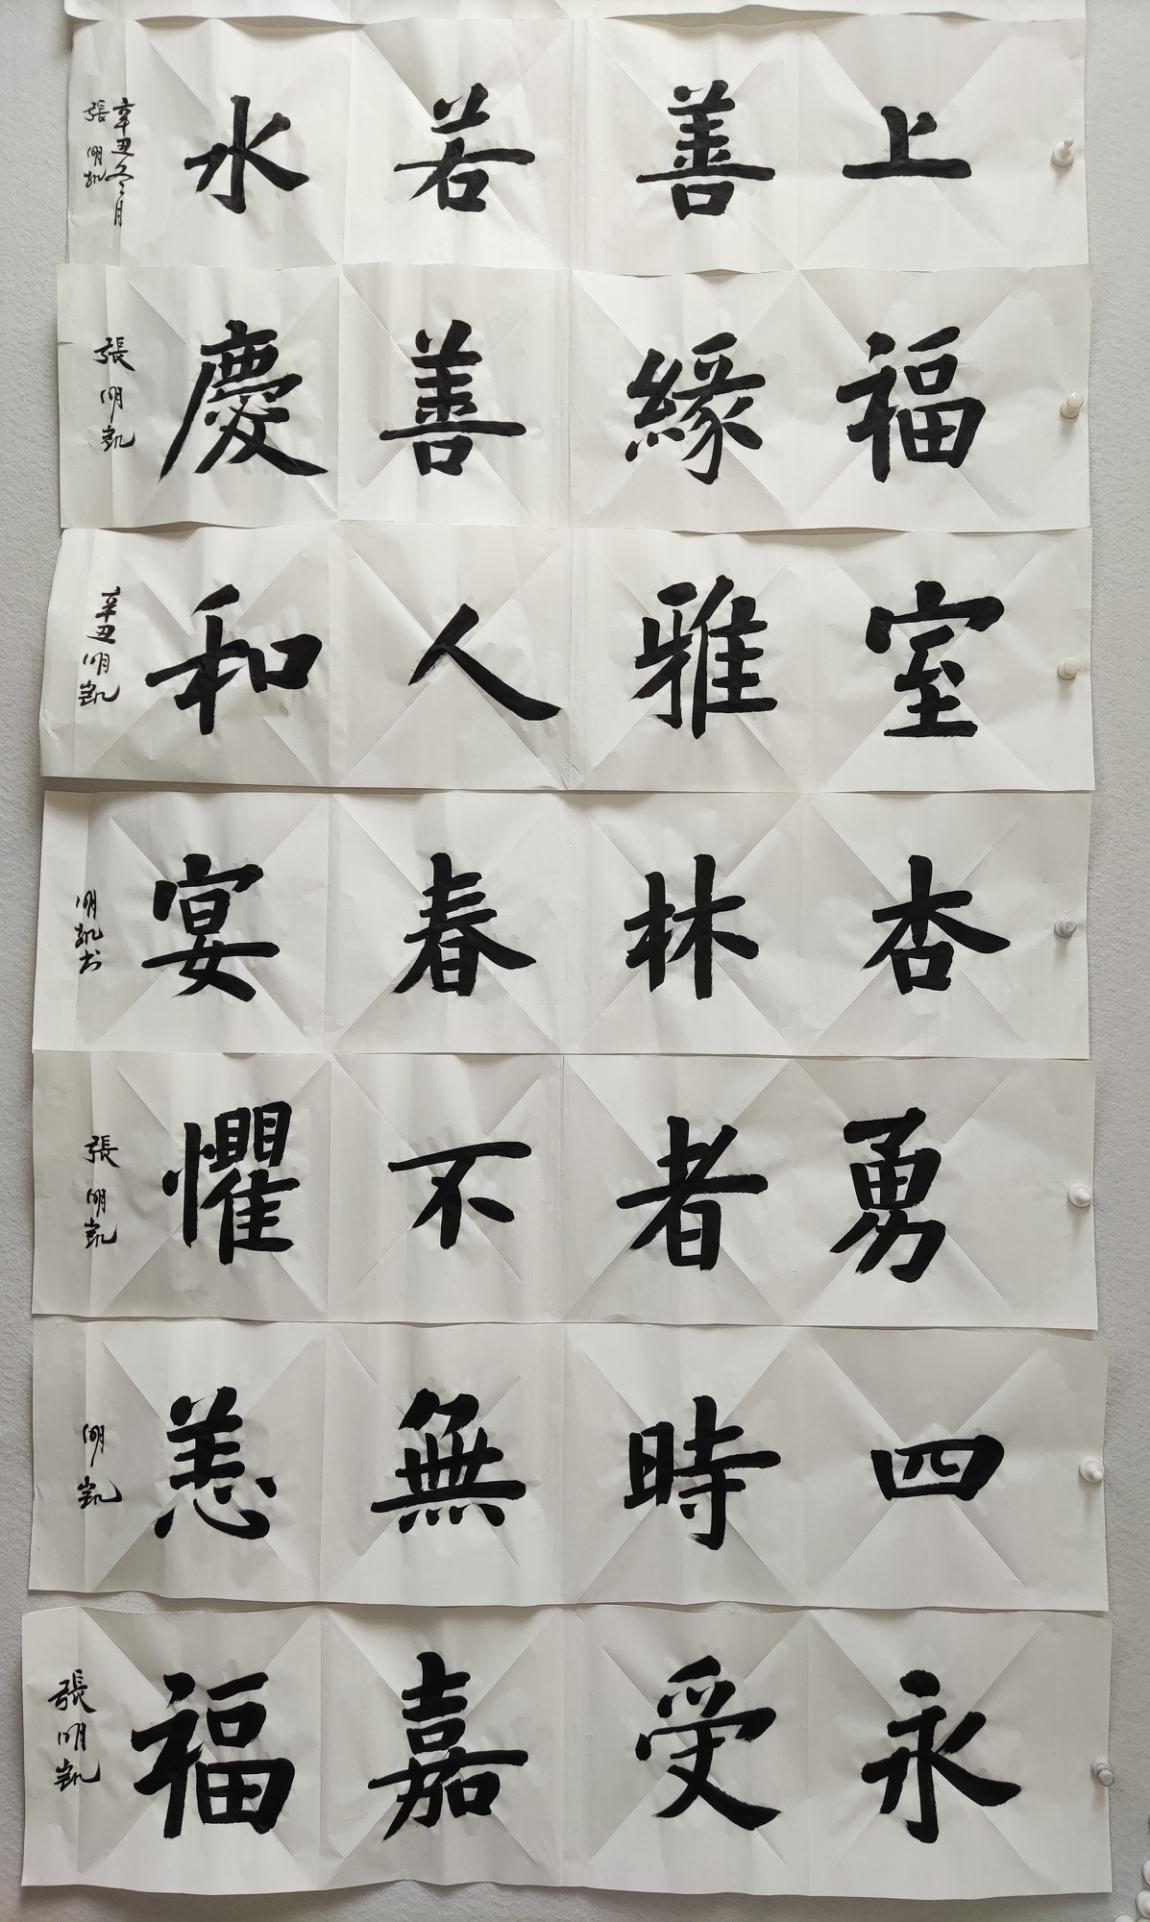 上善若水
辛丑冬月
張明凱
福緣善慶
張明凱
室雅人和
辛丑明凱
杏林春宴
明凱书
勇者不懼
張明凱
四時無恙
明凱
永受嘉福
張明凱